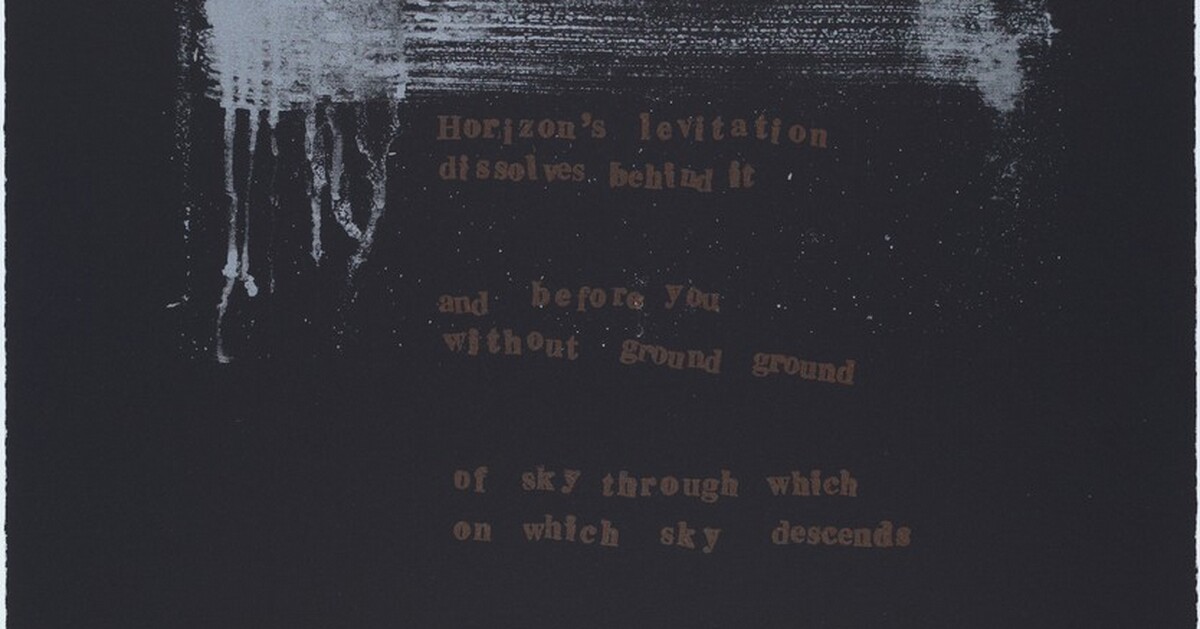 Horizon's levitation
dissolves behind it
and before you
without ground ground
of sky through which
on which sky descends